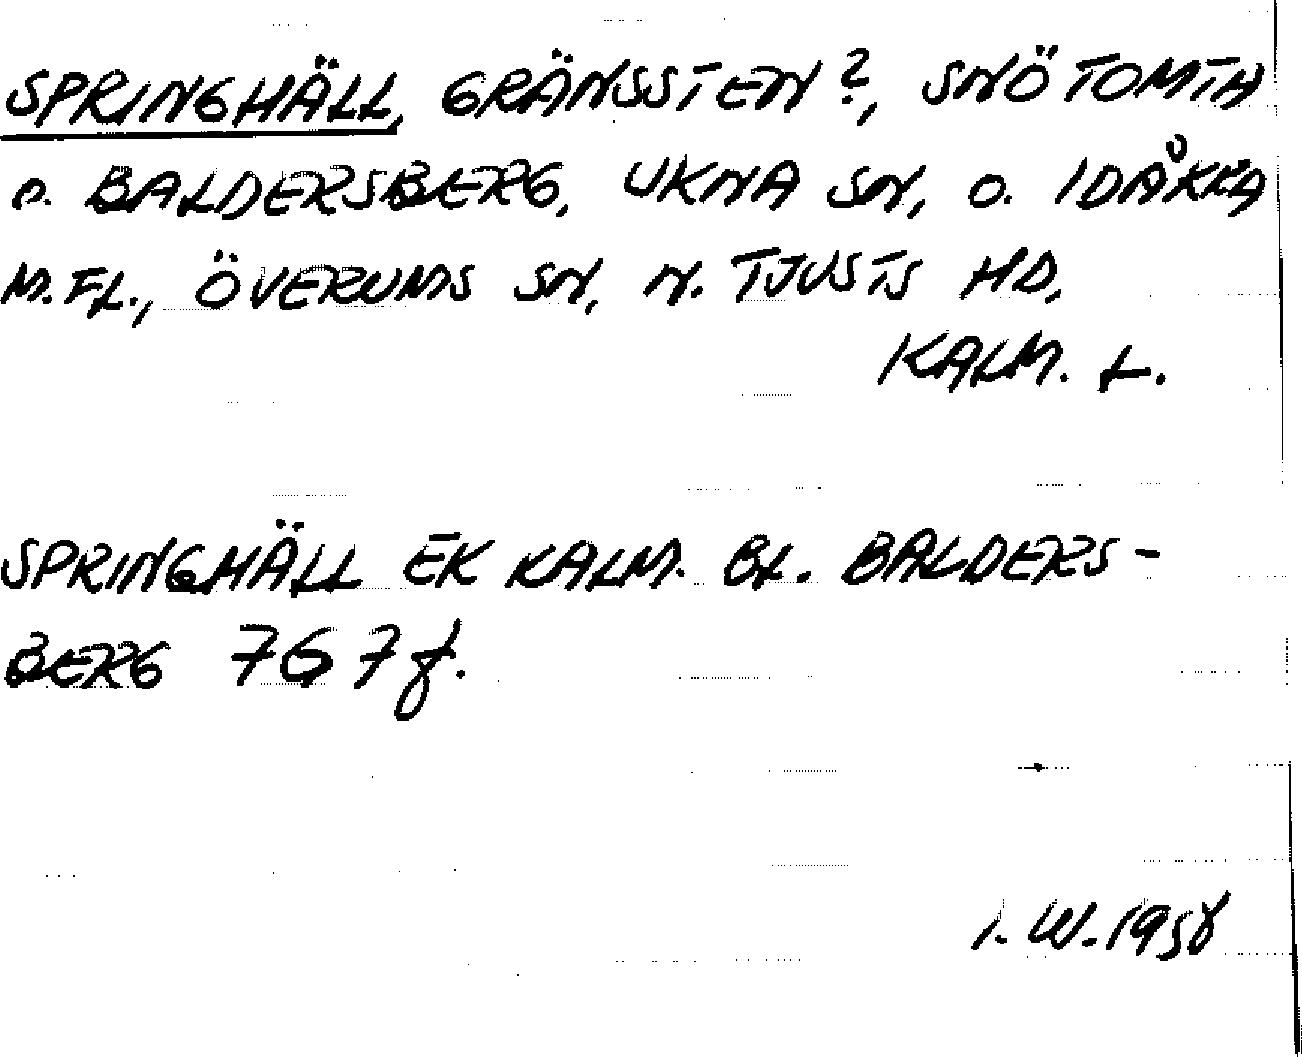 SPRINGHÄLL, GRÄNSSTEN?, SNÖTOMTA
O. BALDERSBERG, UKNA SN, O. IDÅKRA
M.FL., ÖVERUMS SN, N. TJUSTS HD,
KALM. L.
SPRINGHÄLL EK KALM. BL. BALDERS-
BERG 767 f.
I. W. 1958